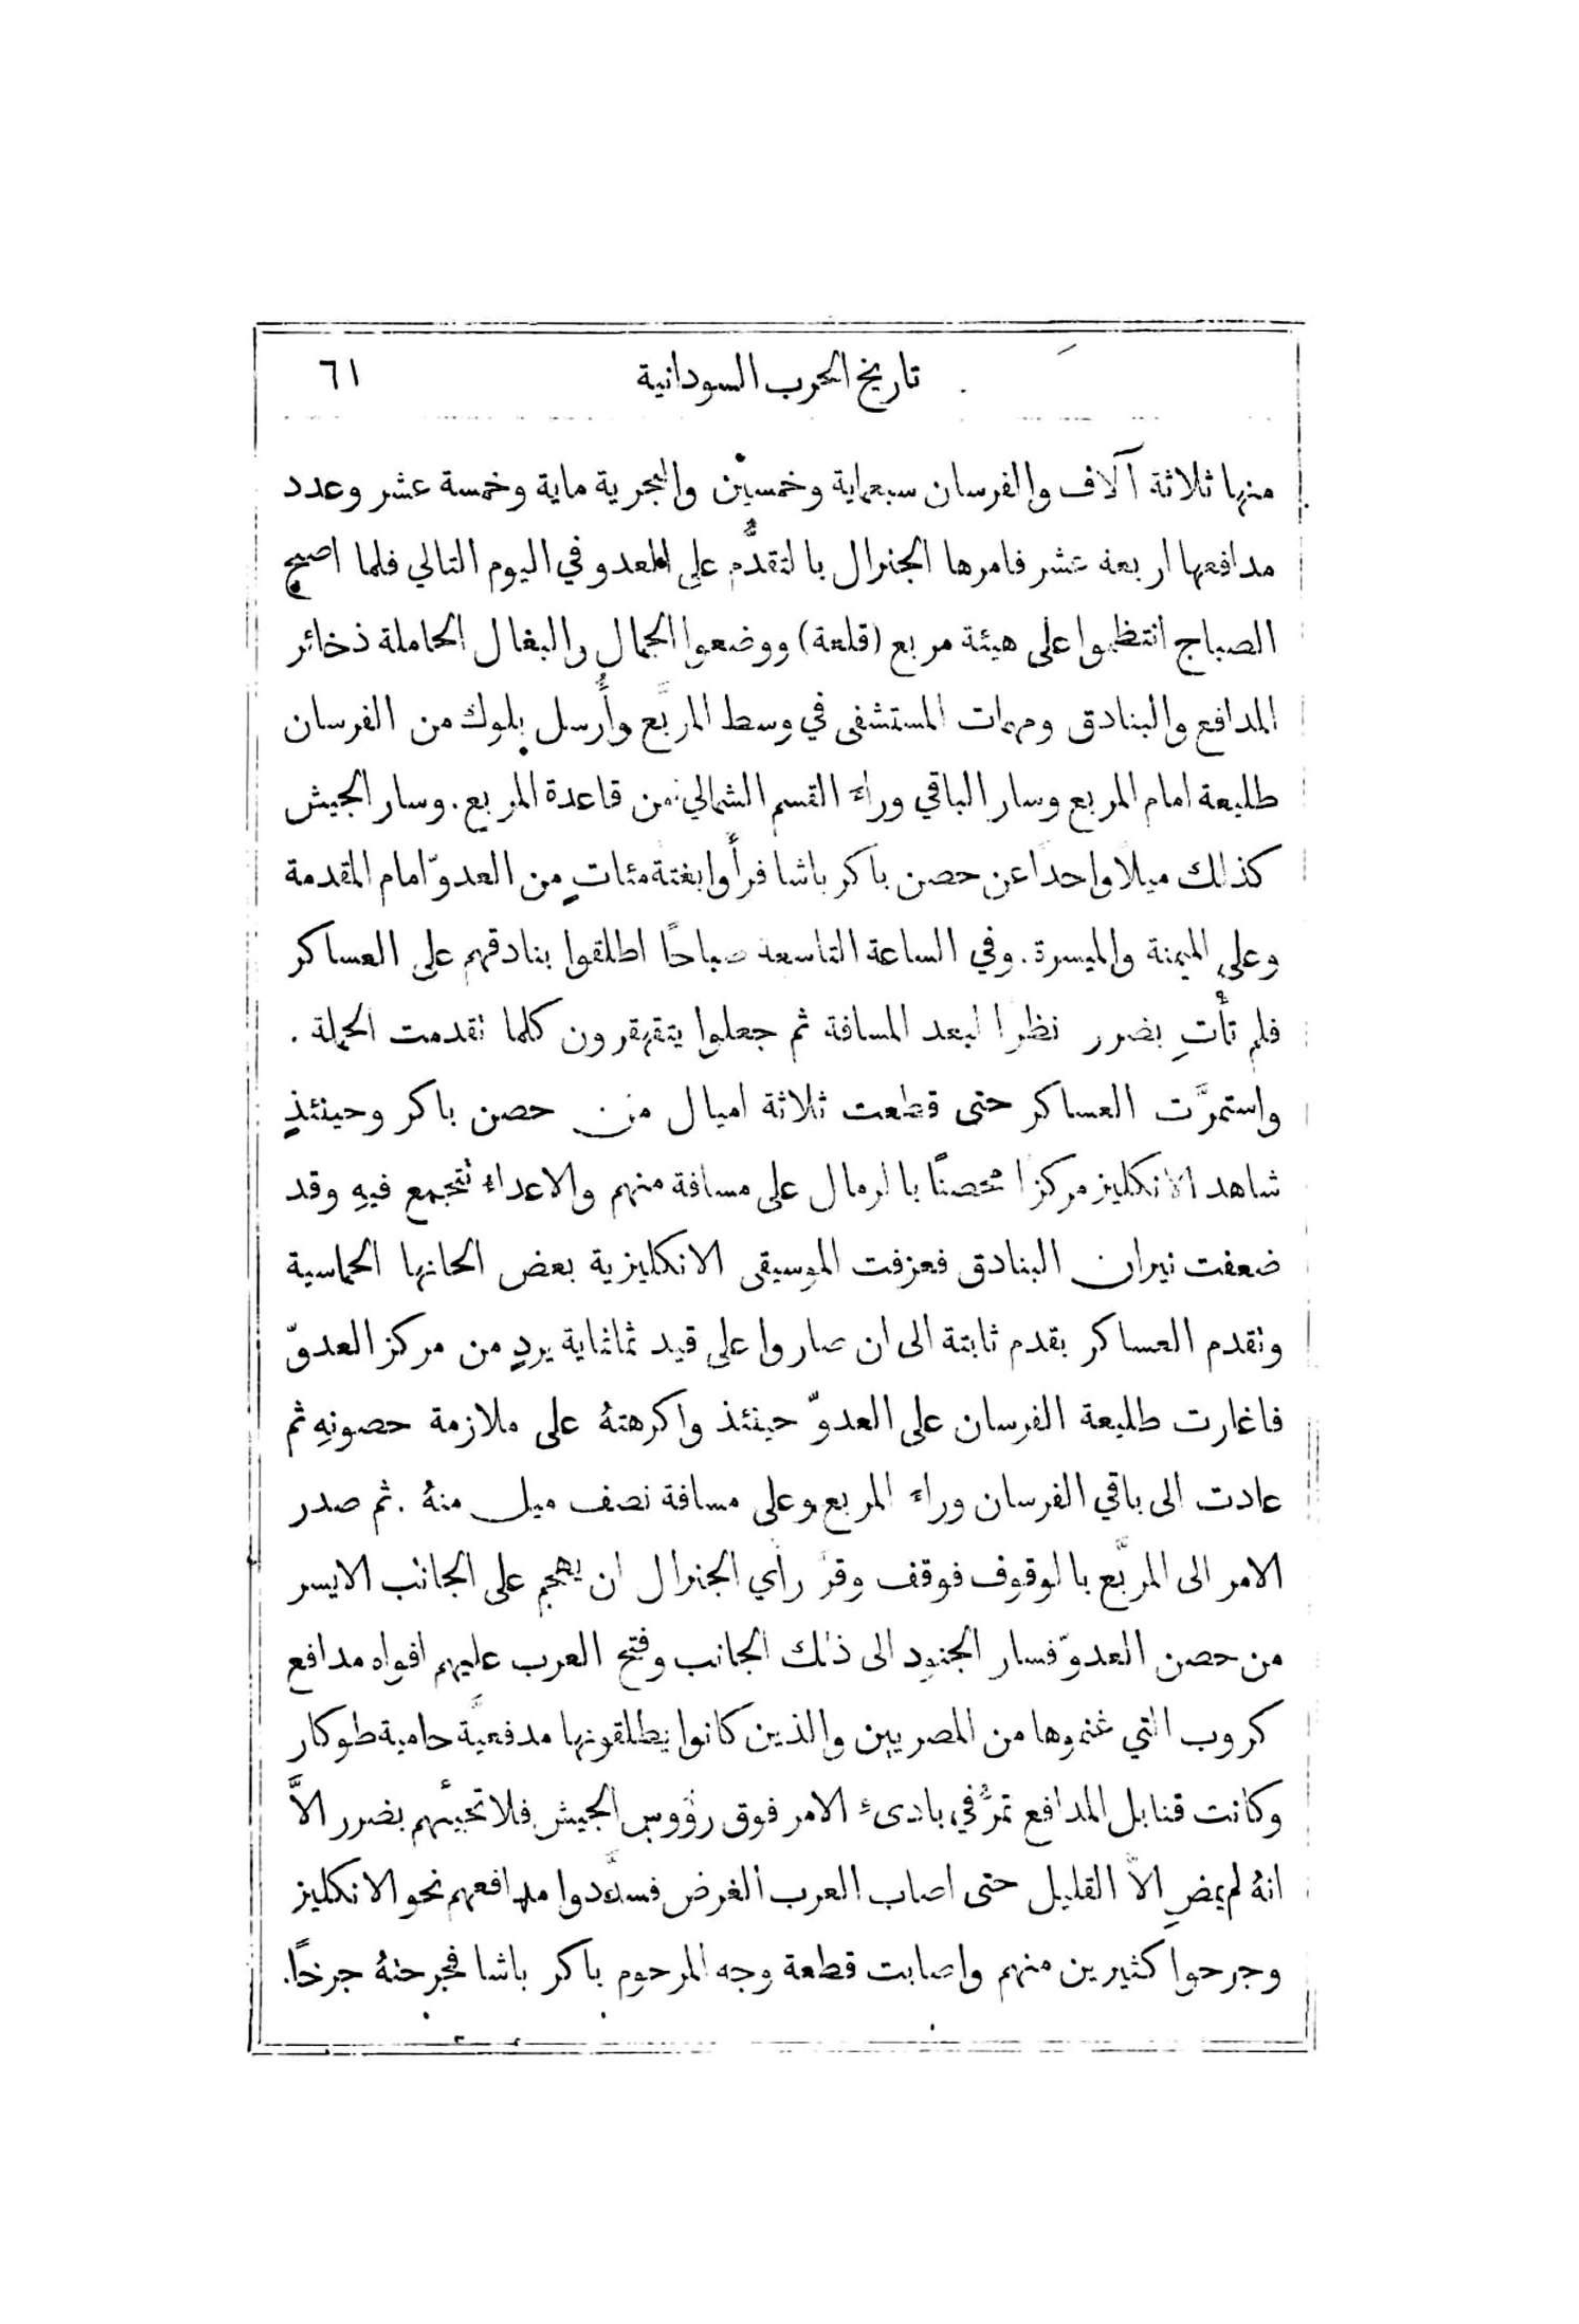 تاريخ الحرب السودانية ٦١
منها ثلاثة آلاف والفرسان سبعماية وخمسين والبحرية ماية وخمسة عشر وعدد
مدافعها اربعة عشر فامرها الجنرال بالتقدُّم على العدو في اليوم التالي فلما اصبح
الصباح انتظموا على هيئة مربع (قلعة) ووضعوا الجمال والبغال الحاملة ذخائر
المدافع والبنادق ومهمات المستشفى في وسط المربَّع وأُرسل بلوك من الفرسان
طليعة امام المربع وسار الباقي وراء القسم الشمالي من قاعدة المربع. وسار الجيش
كذلك ميلا واحدًا عن حصن باكر باشا فرأوا بغتة مئاتٍ من العدوّ امام المقدمة
وعلى الميمنة والميسرة. وفي الساعة التاسعة صباحًا اطلقوا بنادقهم على العساكر
فلم تأتِ بضرر نظرا لبعد المسافة ثم جعلوا يتقهقرون كلما تقدمت الحملة .
واستمرَّت العساكر حتى قطعت ثلاثة اميال من حصن باكر وحينئذٍ
شاهد الانكليز مركزا محصنًا بالرمال على مسافة منهم والاعداء تتجمع فيهِ وقد
ضعفت نيران البنادق فعزفت الموسيقى الانكليزية بعض الحانها الحماسية
وتقدم العساكر بقدم ثابتة الى ان صاروا على قيد ثمانماية يردٍ من مركز العدوّ
فاغارت طليعة الفرسان على العدوّ حينئذ واكرهتهُ على ملازمة حصونهِ ثم
عادت الى باقي الفرسان وراء المربع وعلى مسافة نصف ميل منهُ . ثم صدر
الامر الى المربَّع بالوقوف فوقف وقرَّ رأي الجنرال ان يهجم على الجانب الايسر
من حصن العدوّ فسار الجنود الى ذلك الجانب وفتح العرب عليهم افواه مدافع
كروب التي غنموها من المصريين والذين كانوا يطلقونها مدفعيَّة حامية طوكار
وكانت قنابل المدافع تمرُّ في بادىء الامر فوق رؤُوس الجيش فلا تجيئهم بضرر الاَّ
انهُ لم يمضِ الاَّ القليل حتى اصاب العرب الغرض فسدَّدوا مدافعهم نحو الانكليز
وجرحوا كثيرين منهم واصابت قطعة وجه المرحوم باكر باشا فجرحتهُ جرحًا.